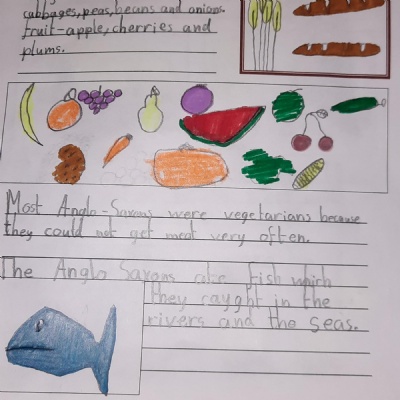 cabbages, peas, beans and onions.
fruit-apple, cherries and
plums.
Most Anglo-Saxons were vegetarians because
they could not get meat very often.
The Anglo Saxons ate fish which
they caught in the
rivers and the seas.